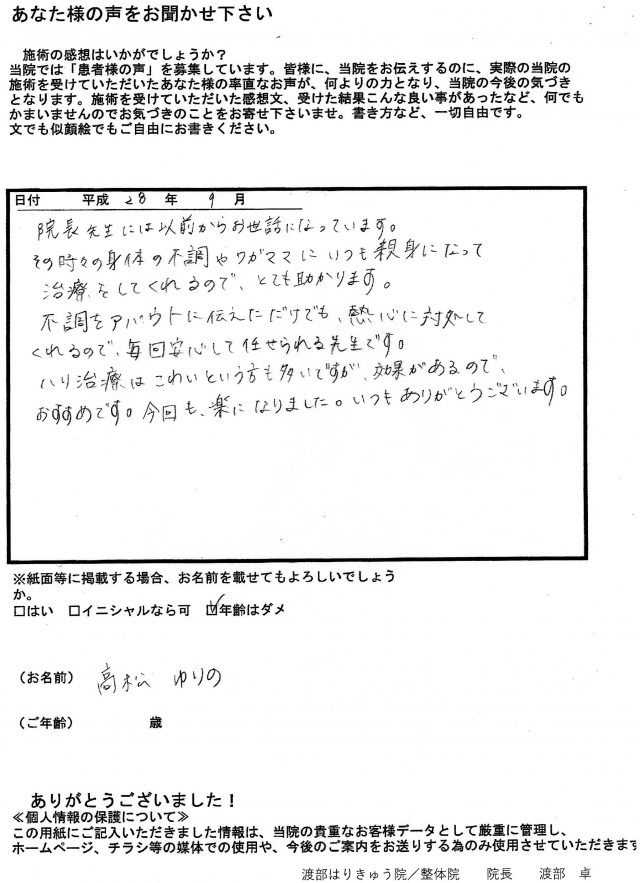 あなた様の声をお聞かせ下さい
施術の感想はいかがでしょうか？
当院では「患者様の声」を募集しています。皆様に、当院をお伝えするのに、実際の当院の
施術を受けていただいたあなた様の率直なお声が、何よりの力となり、当院の今後の気づき
となります。施術を受けていただいた感想文、受けた結果こんな良い事があったなど、何でも
かまいませんのでお気づきのことをお寄せ下さいませ。書き方など、一切自由です。
文でも似顔絵でもご自由にお書きください。
日付 平成 28 年 9 月
院長先生には以前からお世話になっています。
その時々の身体の不調やワガママにいつも親身になって
治療をしてくれるので、とても助かります。
不調をアバウトに伝えただけでも、熱心に対処して
くれるので、毎回安心して任せられる先生です。
ハリ治療はこわいという方も多いですが、効果があるので、
おすすめです。今回も、楽になりました。いつもありがとうございます。
※紙面等に掲載する場合、お名前を載せてもよろしいでしょう
か。
□はい □イニシャルなら可 ☑年齢はダメ
（お名前） 高松 ゆりの
（ご年齢） 歳
ありがとうございました！
≪個人情報の保護について≫
この用紙にご記入いただきました情報は、当院の貴重なお客様データとして厳重に管理し、
ホームページ、チラシ等の媒体での使用や、今後のご案内をお送りする為のみ使用させていただきます
渡部はりきゅう院／整体院 院長 渡部 卓